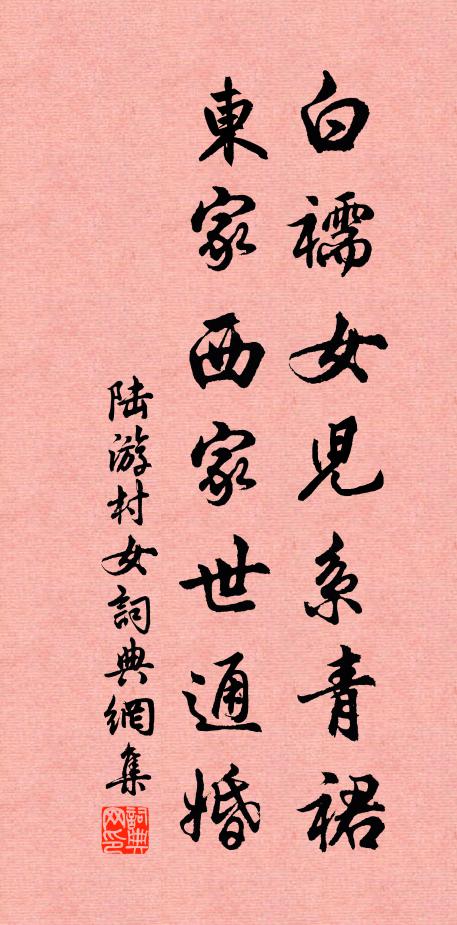 白襦女兒系青裙
東家西家世通婚
陆游村女詞典網集
詞典网印